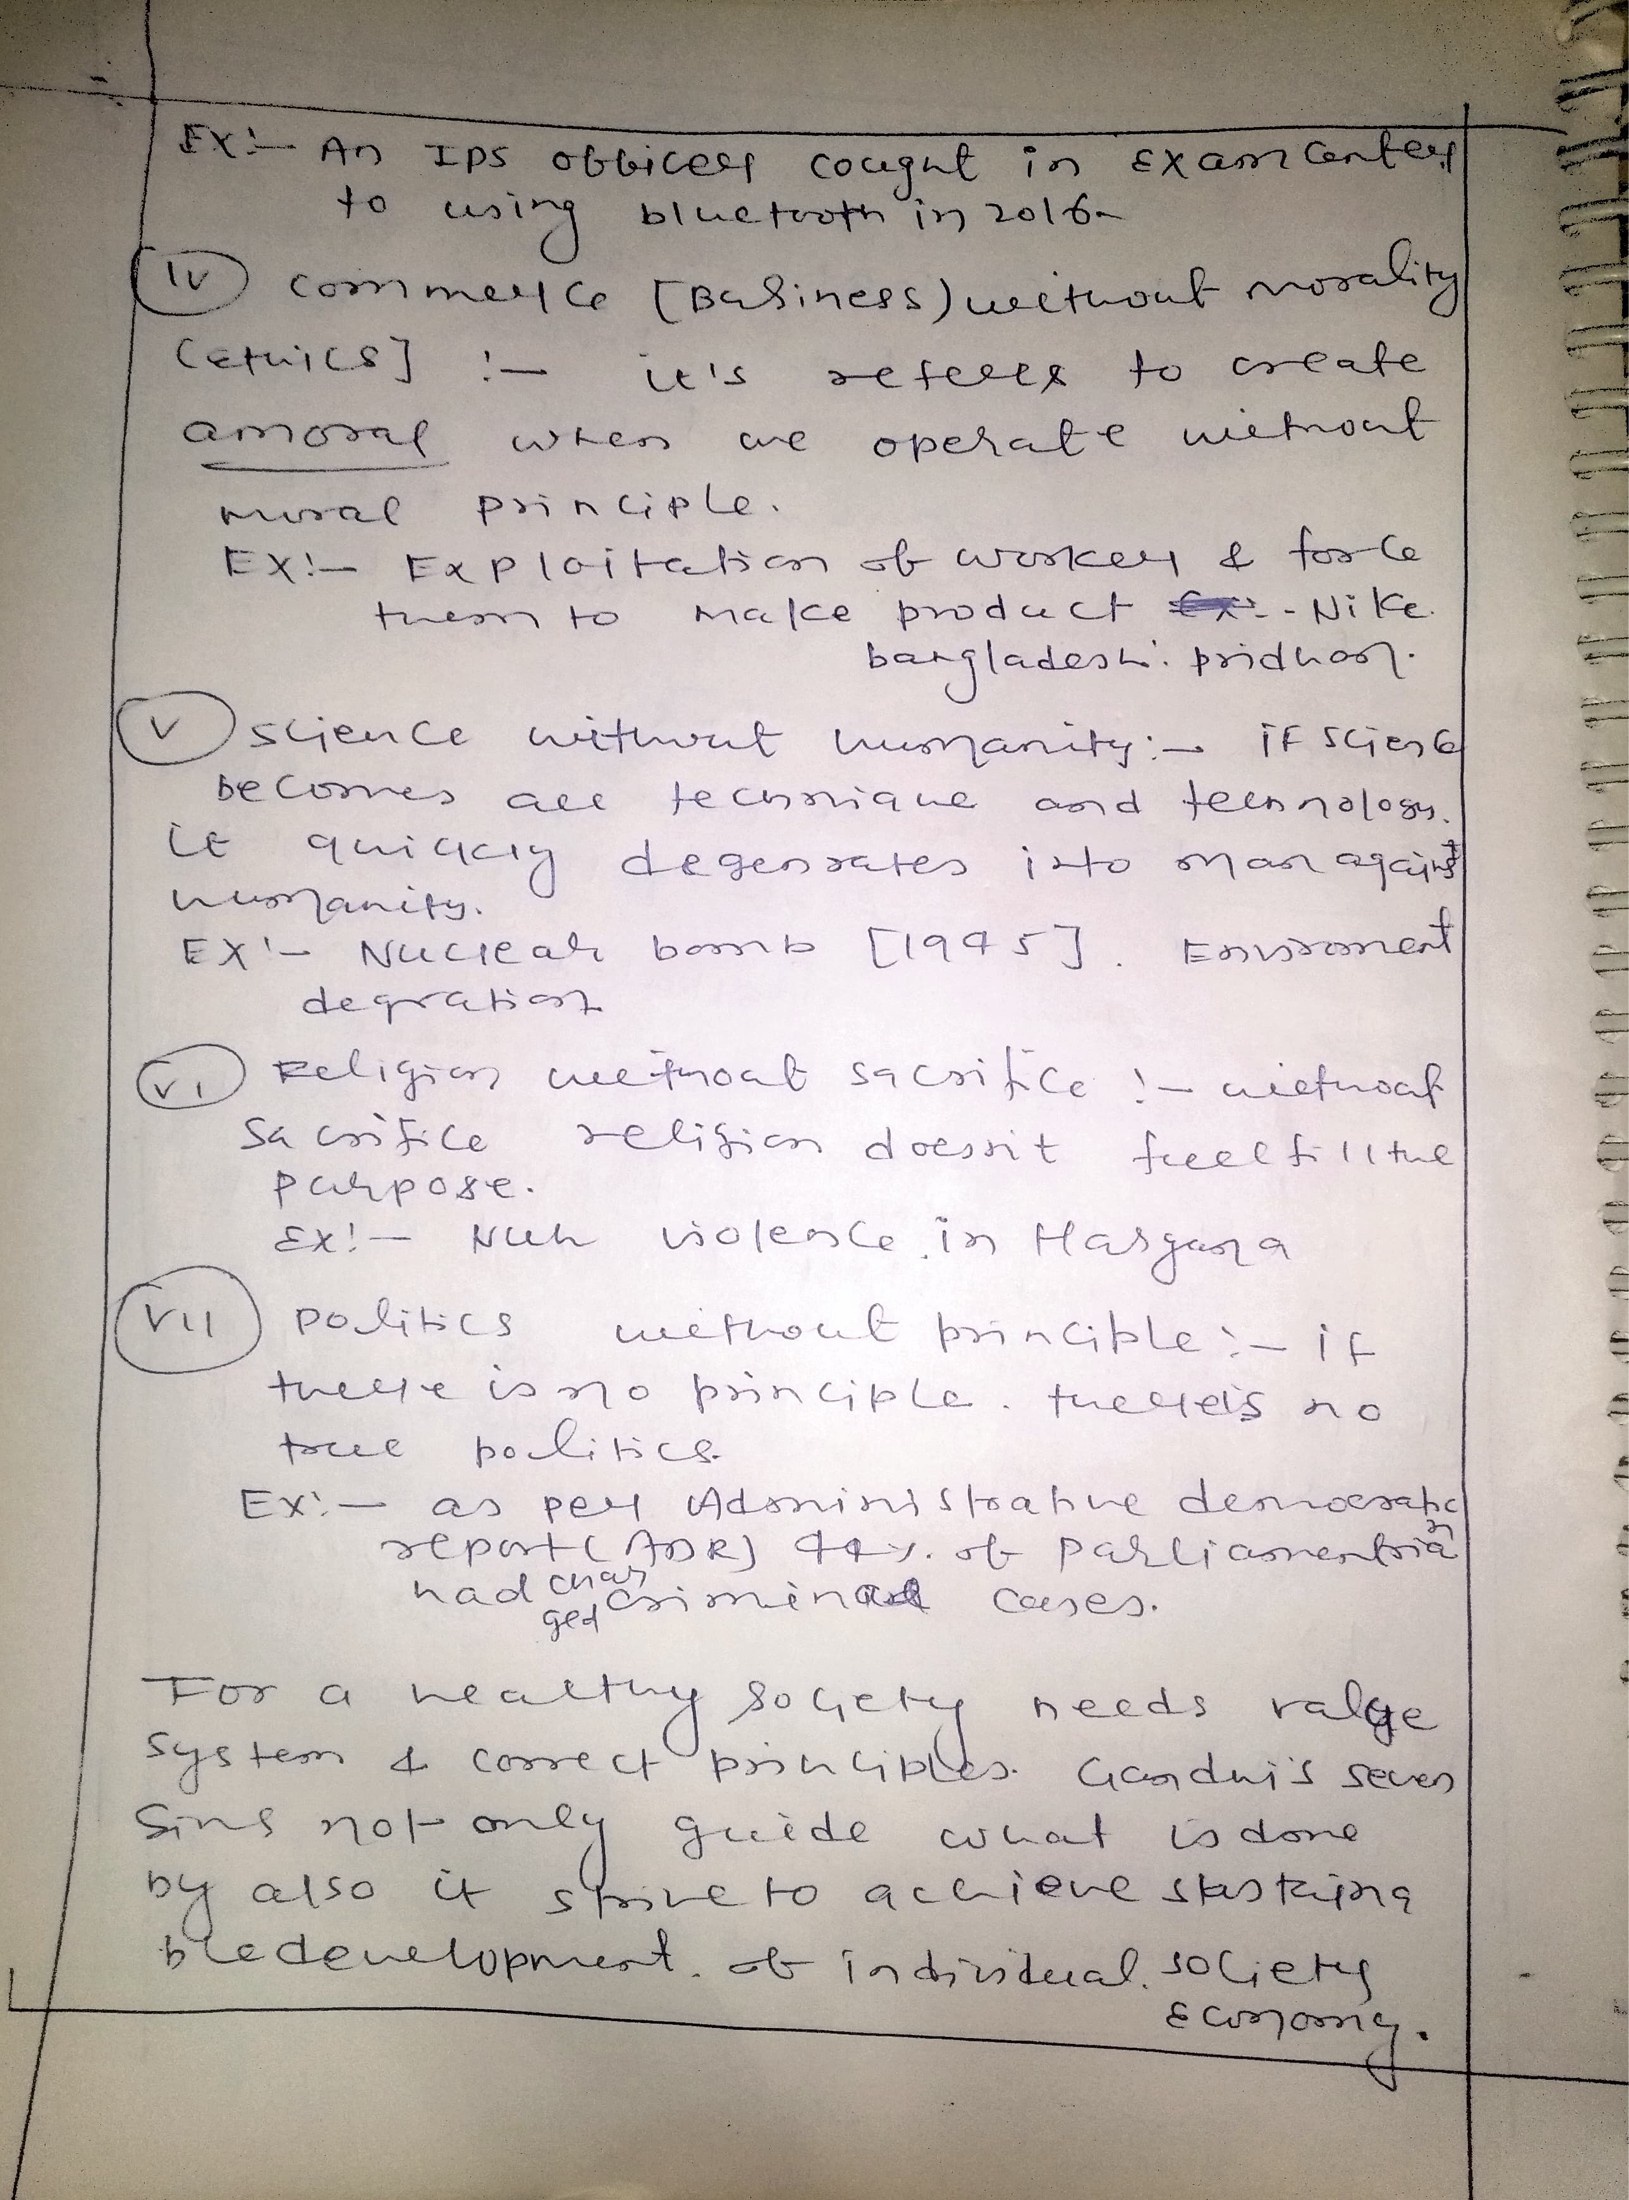 Ex:- An IPS officer cought in Exam Center
to using bluetooth in 2016
(iv) Commerce [Business) without morality
(ethics] :- it's referes to create
amoral when we operate without
moral principle.
EX:- Explaitation of worker & force
them to make product - Nike
bangladesh.
(v) science without humanity:- if science
becomes all technique and technology.
it quickly degenrates into man against
humanity.
EX:- Nuclear bomb [1945]. Enviroment
degration
(vi) Religion without sacrifice :- without
Sacrifice religion doesn't fullfill the
purpose.
Ex:- Nuh violence in Haryana
(vii) politics without principle:- if
there is no principle. there is no
true politics.
Ex:- as per Administrative democratic
report (ADR) 44%. of Parliamentrian
had charged criminal cases.
For a healthy society needs value
system & correct principles. Gandhi's seven
Sins not only guide what is done
by also it strive to achieve sustaina
ble development. of individual. society
Economy.